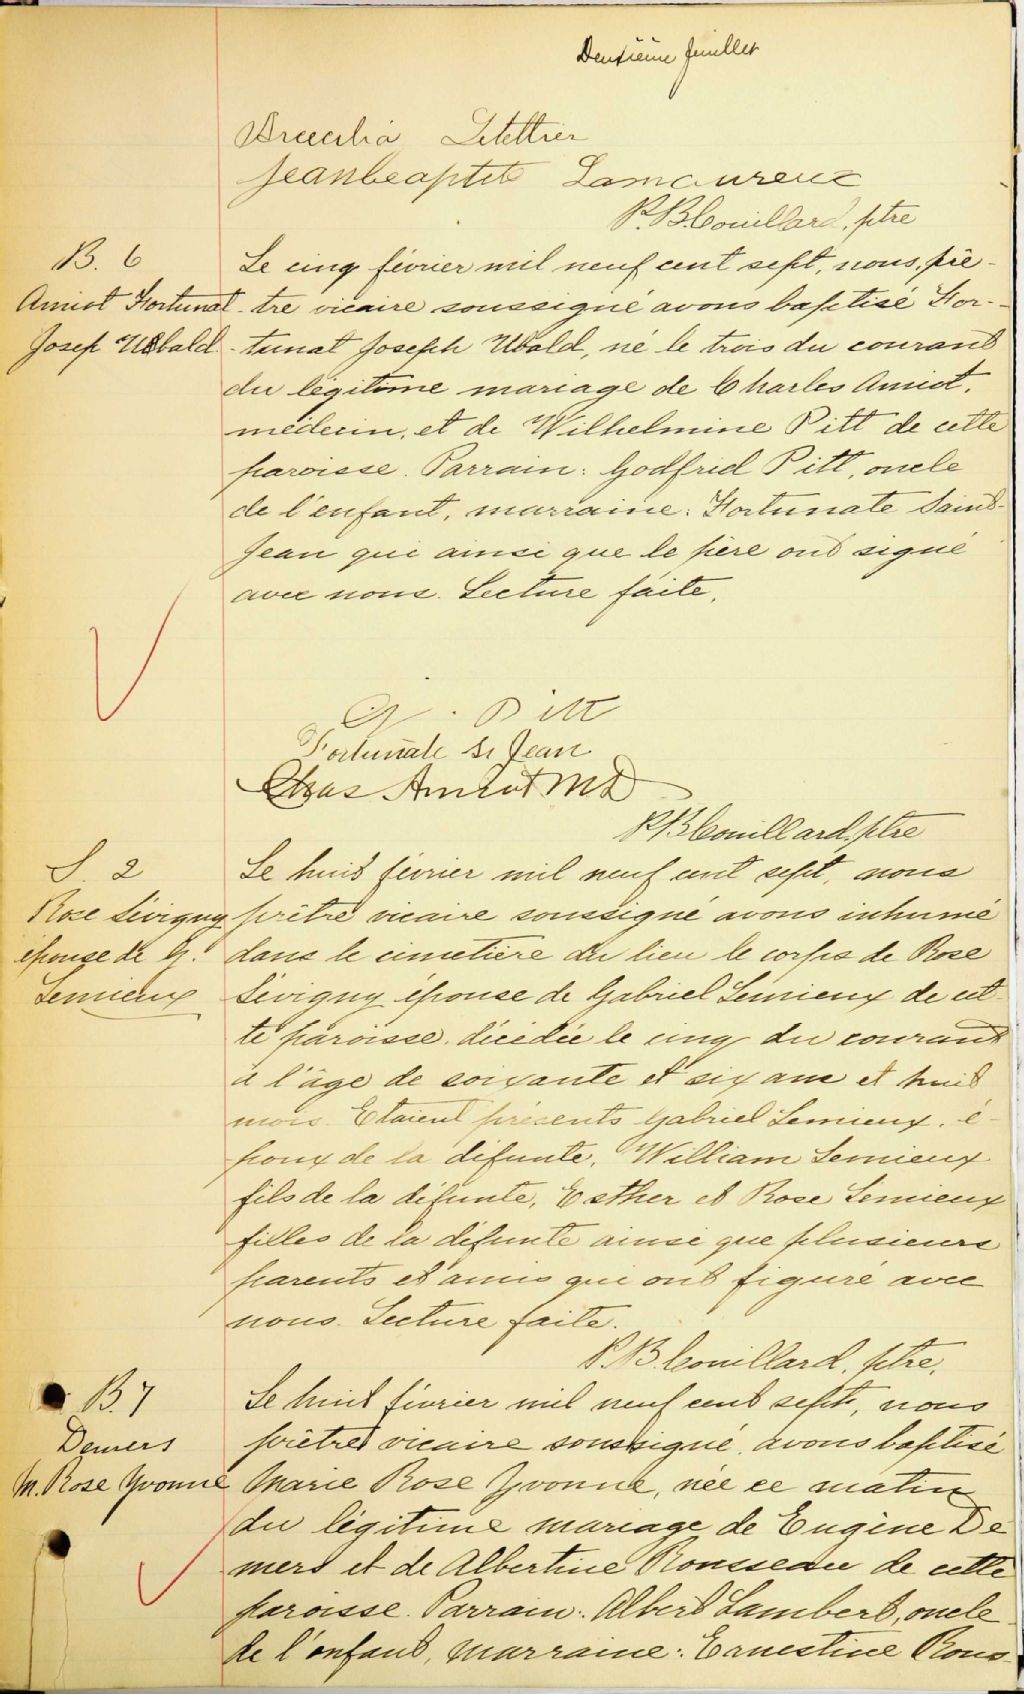 Deuxième feuillet
Letellier
Jeanbeaptite Lamoureux
P. B. Couillard, ptre
B. 6
Amiot Fortunat
Josep Ubald
Le cinq février mil neuf cent sept, nous, prê-
-tre vicaire soussigné avons baptisé For-
-tunat Joseph Ubald, né le trois du courant
du légitime mariage de Charles Amiot,
médecin, et de Wilhelmine Pitt de cette
paroisse. Parrain: Godfrid Pitt, oncle
de l'enfant, marraine: Fortunate Saint-
Jean qui ainsi que le père ont signé
avec nous. Lecture faite.
G. Pitt
Fortunate St Jean
Chas Amiot MD
P. B. Couillard, ptre
S. 2
Rose Sévigny
épouse de G.
Lemieux
Le huit février mil neuf cent sept, nous
prêtre vicaire soussigné avons inhumé
dans le cimetière du lieu le corps de Rose
Sévigny épouse de Gabriel Lemieux de cet-
te paroisse décédée le cinq du courant
à l'âge de soixante et six ans et huit
mois. Etaient présents Gabriel Lemieux, é-
poux de la défunte, William Lemieux
fils de la défunte, Esther et Rose Lemieux
filles de la défunte ainsi que plusieurs
parents et amis qui ont figuré avec
nous. Lecture faite.
P. B. Couillard, ptre.
B. 7
Demers
M. Rose Yvonne
Le huit février mil neuf cent sept, nous
prêtre vicaire soussigné, avons baptisé
Marie Rose Yvonne, née ce matin
du légitime mariage de Eugène De-
mers et de Albertine Rousseau de cette
paroisse. Parrain: Albert Lambert, oncle
de l'enfant, marraine: Ernestine Rous-